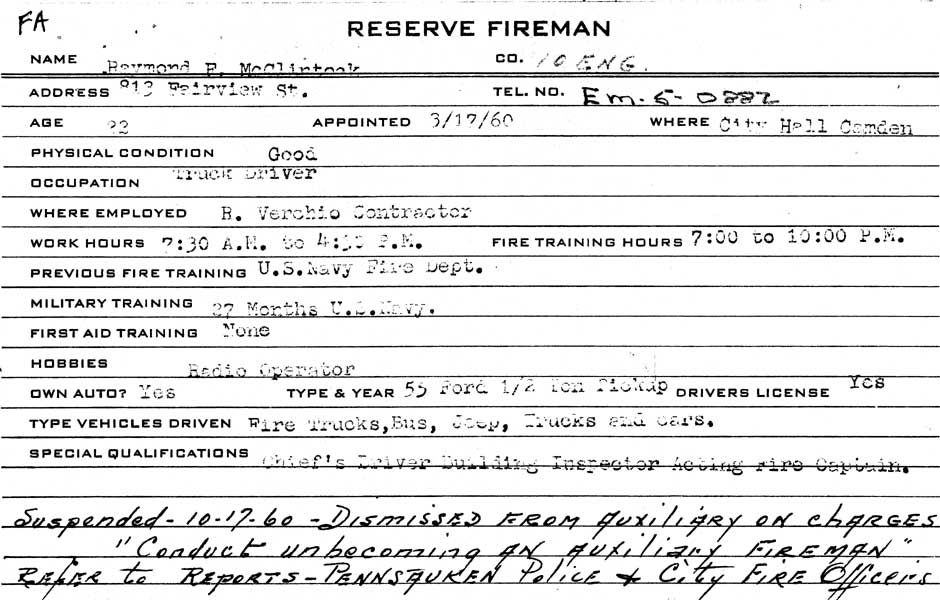 FA
RESERVE FIREMAN
NAME Raymond F. McClintock CO. 10 ENG.
ADDRESS 813 Fairview St. TEL. NO. Em-5-0882
AGE 22 APPOINTED 3/17/60 WHERE City Hall Camden
PHYSICAL CONDITION Good
OCCUPATION Truck Driver
WHERE EMPLOYED R. Verchio Contractor
WORK HOURS 7:30 A.M. to 4:30 P.M. FIRE TRAINING HOURS 7:00 to 10:00 P.M.
PREVIOUS FIRE TRAINING U.S.Navy Fire Dept.
MILITARY TRAINING 27 Months U.S.Navy.
FIRST AID TRAINING None
HOBBIES Radio Operator
OWN AUTO? Yes TYPE & YEAR 55 Ford 1/2 Ton Pickup DRIVERS LICENSE Yes
TYPE VEHICLES DRIVEN Fire Trucks,Bus, Jeep, Trucks and cars.
SPECIAL QUALIFICATIONS Chief's Driver Building Inspector Acting Fire Captain.
Suspended-10-17-60-Dismissed from Auxiliary on charges
"Conduct unbecoming an auxiliary Fireman"
Refer to Reports-Pennsauken Police & City Fire Officers